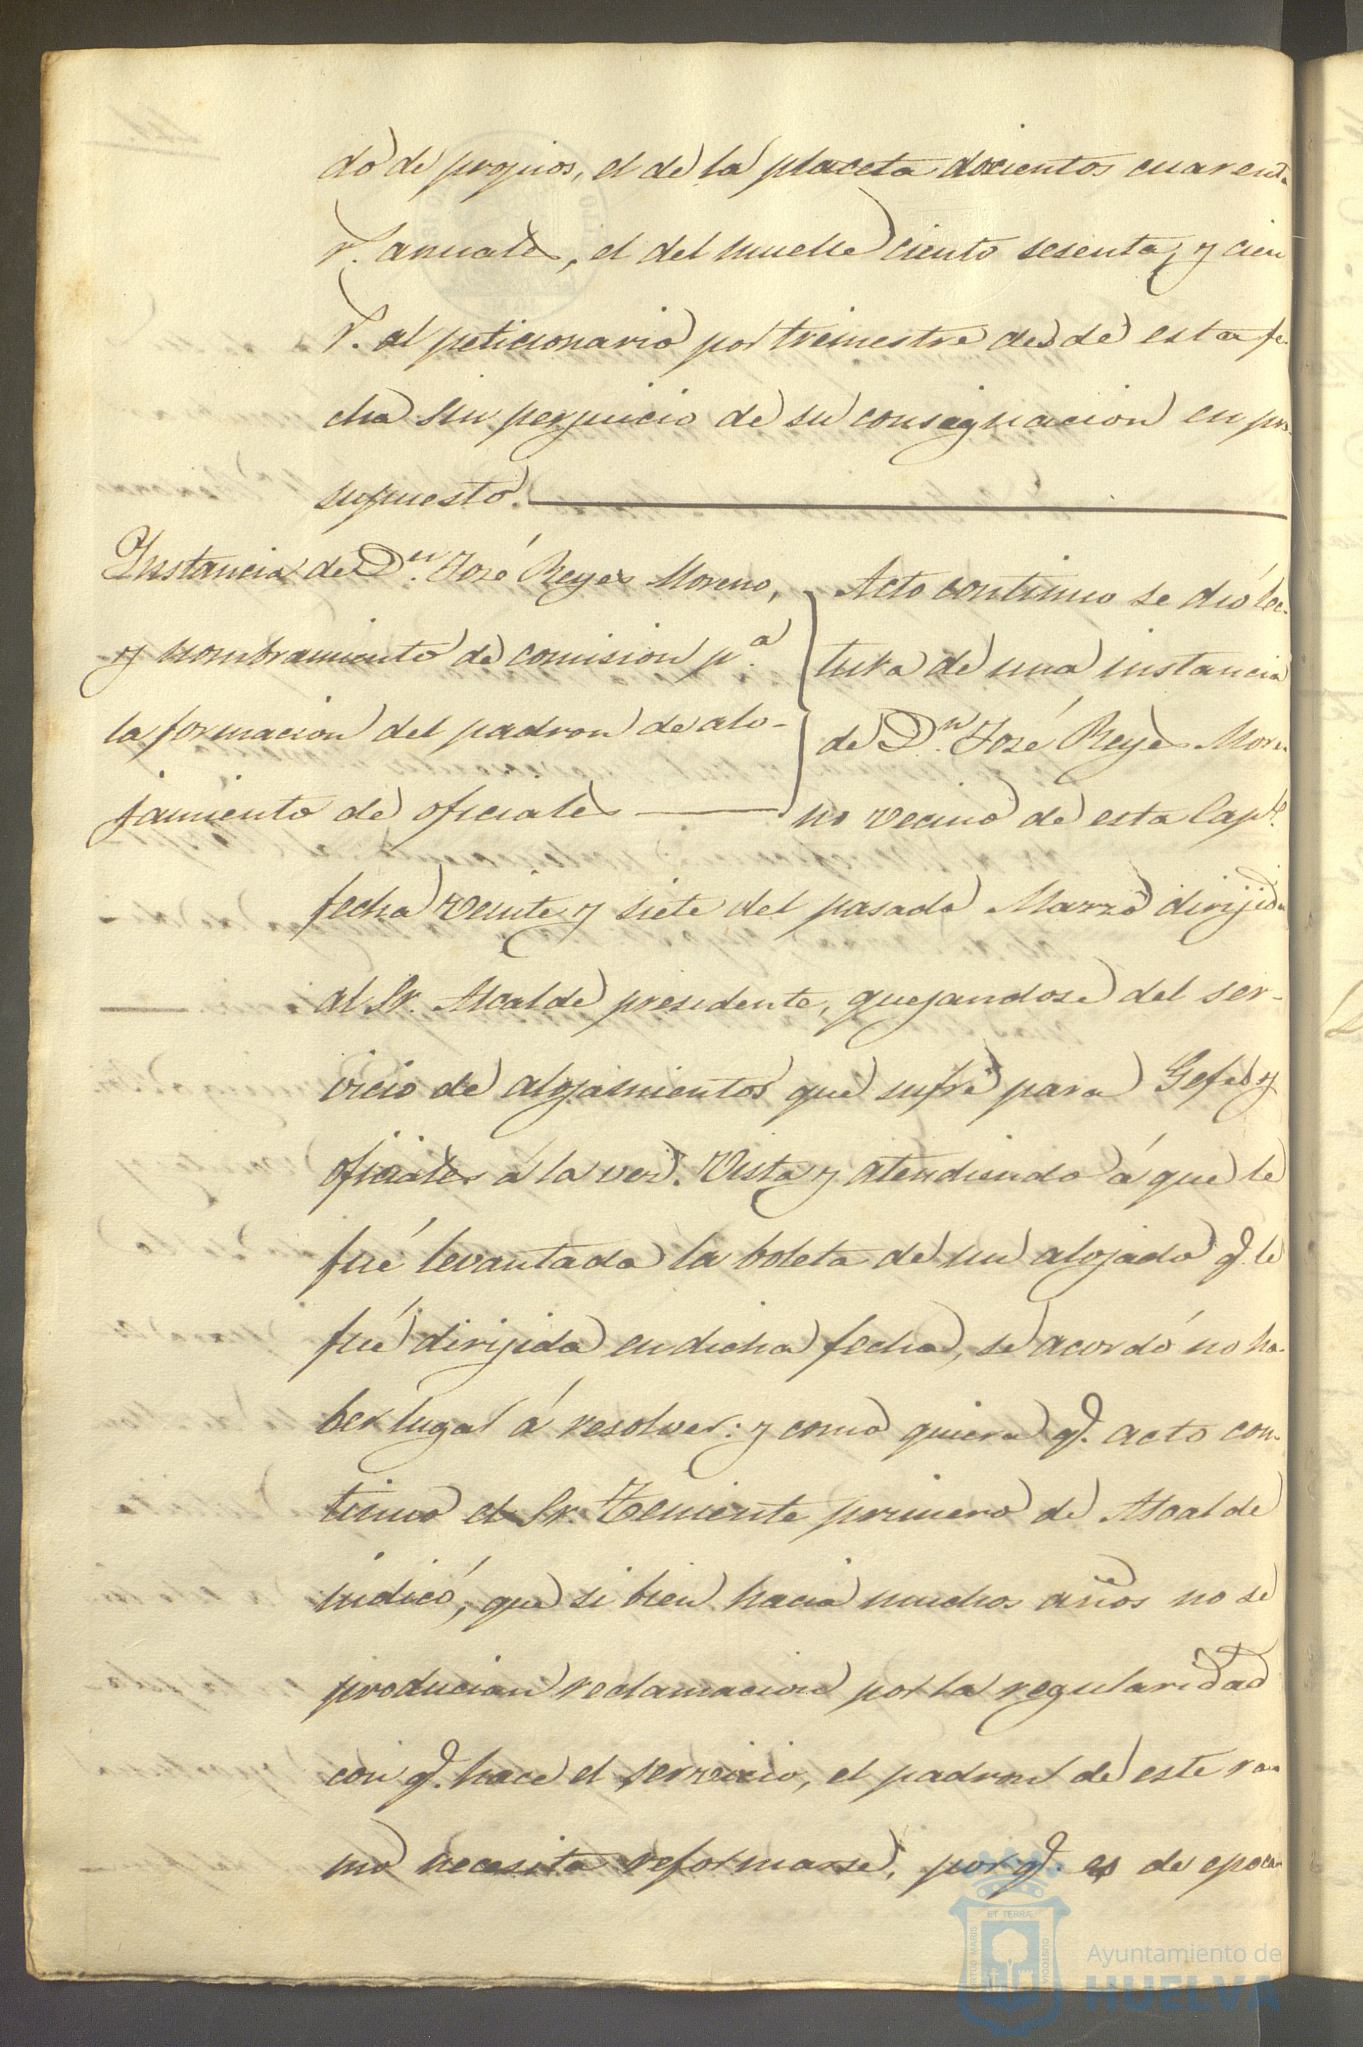 do de propios, el de la placeta docientos cuarenta
r.ˢ anuales, el del muelle ciento sesenta, y cien
r.ˢ al peticionario por trimestre desde esta fe-
cha sin perjuicio de su consignacion en pre-
supuesto.
Instancia de D.ⁿ José Reyes Moreno,
y nombramiento de comision p.ª
la formacion del padron de alo-
jamiento de oficiales
Acto continuo se dió lec-
tura de una instancia
de D.ⁿ José Reyes More-
no vecino de esta Cap.ˡ
fecha veinte y siete del pasado Marzo dirijida
al Sr. Alcalde presidente, quejandose del ser-
vicio de alojamientos que sufre para Gefes y
oficiales á la vez. Vista y atendiendo á que le
fué levantada la boleta de un alojado q.ᵉ le
fué dirijida en dicha fecha, se acordó no ha-
ber lugar á resolver: y como quiera q.ᵉ acto con-
tinuo el Sr. Teniente primero de Alcalde
indicó, que si bien hacia muchos años no se
producian reclamacion por la regularidad
con q.ᵉ hace el servicio, el padron de este ra-
mo necesita reformarse, por q.ᵉ es de epoca
ET TERRÆ
PORTUS MARIS
CUSTODIA
Ayuntamiento de
HUELVA